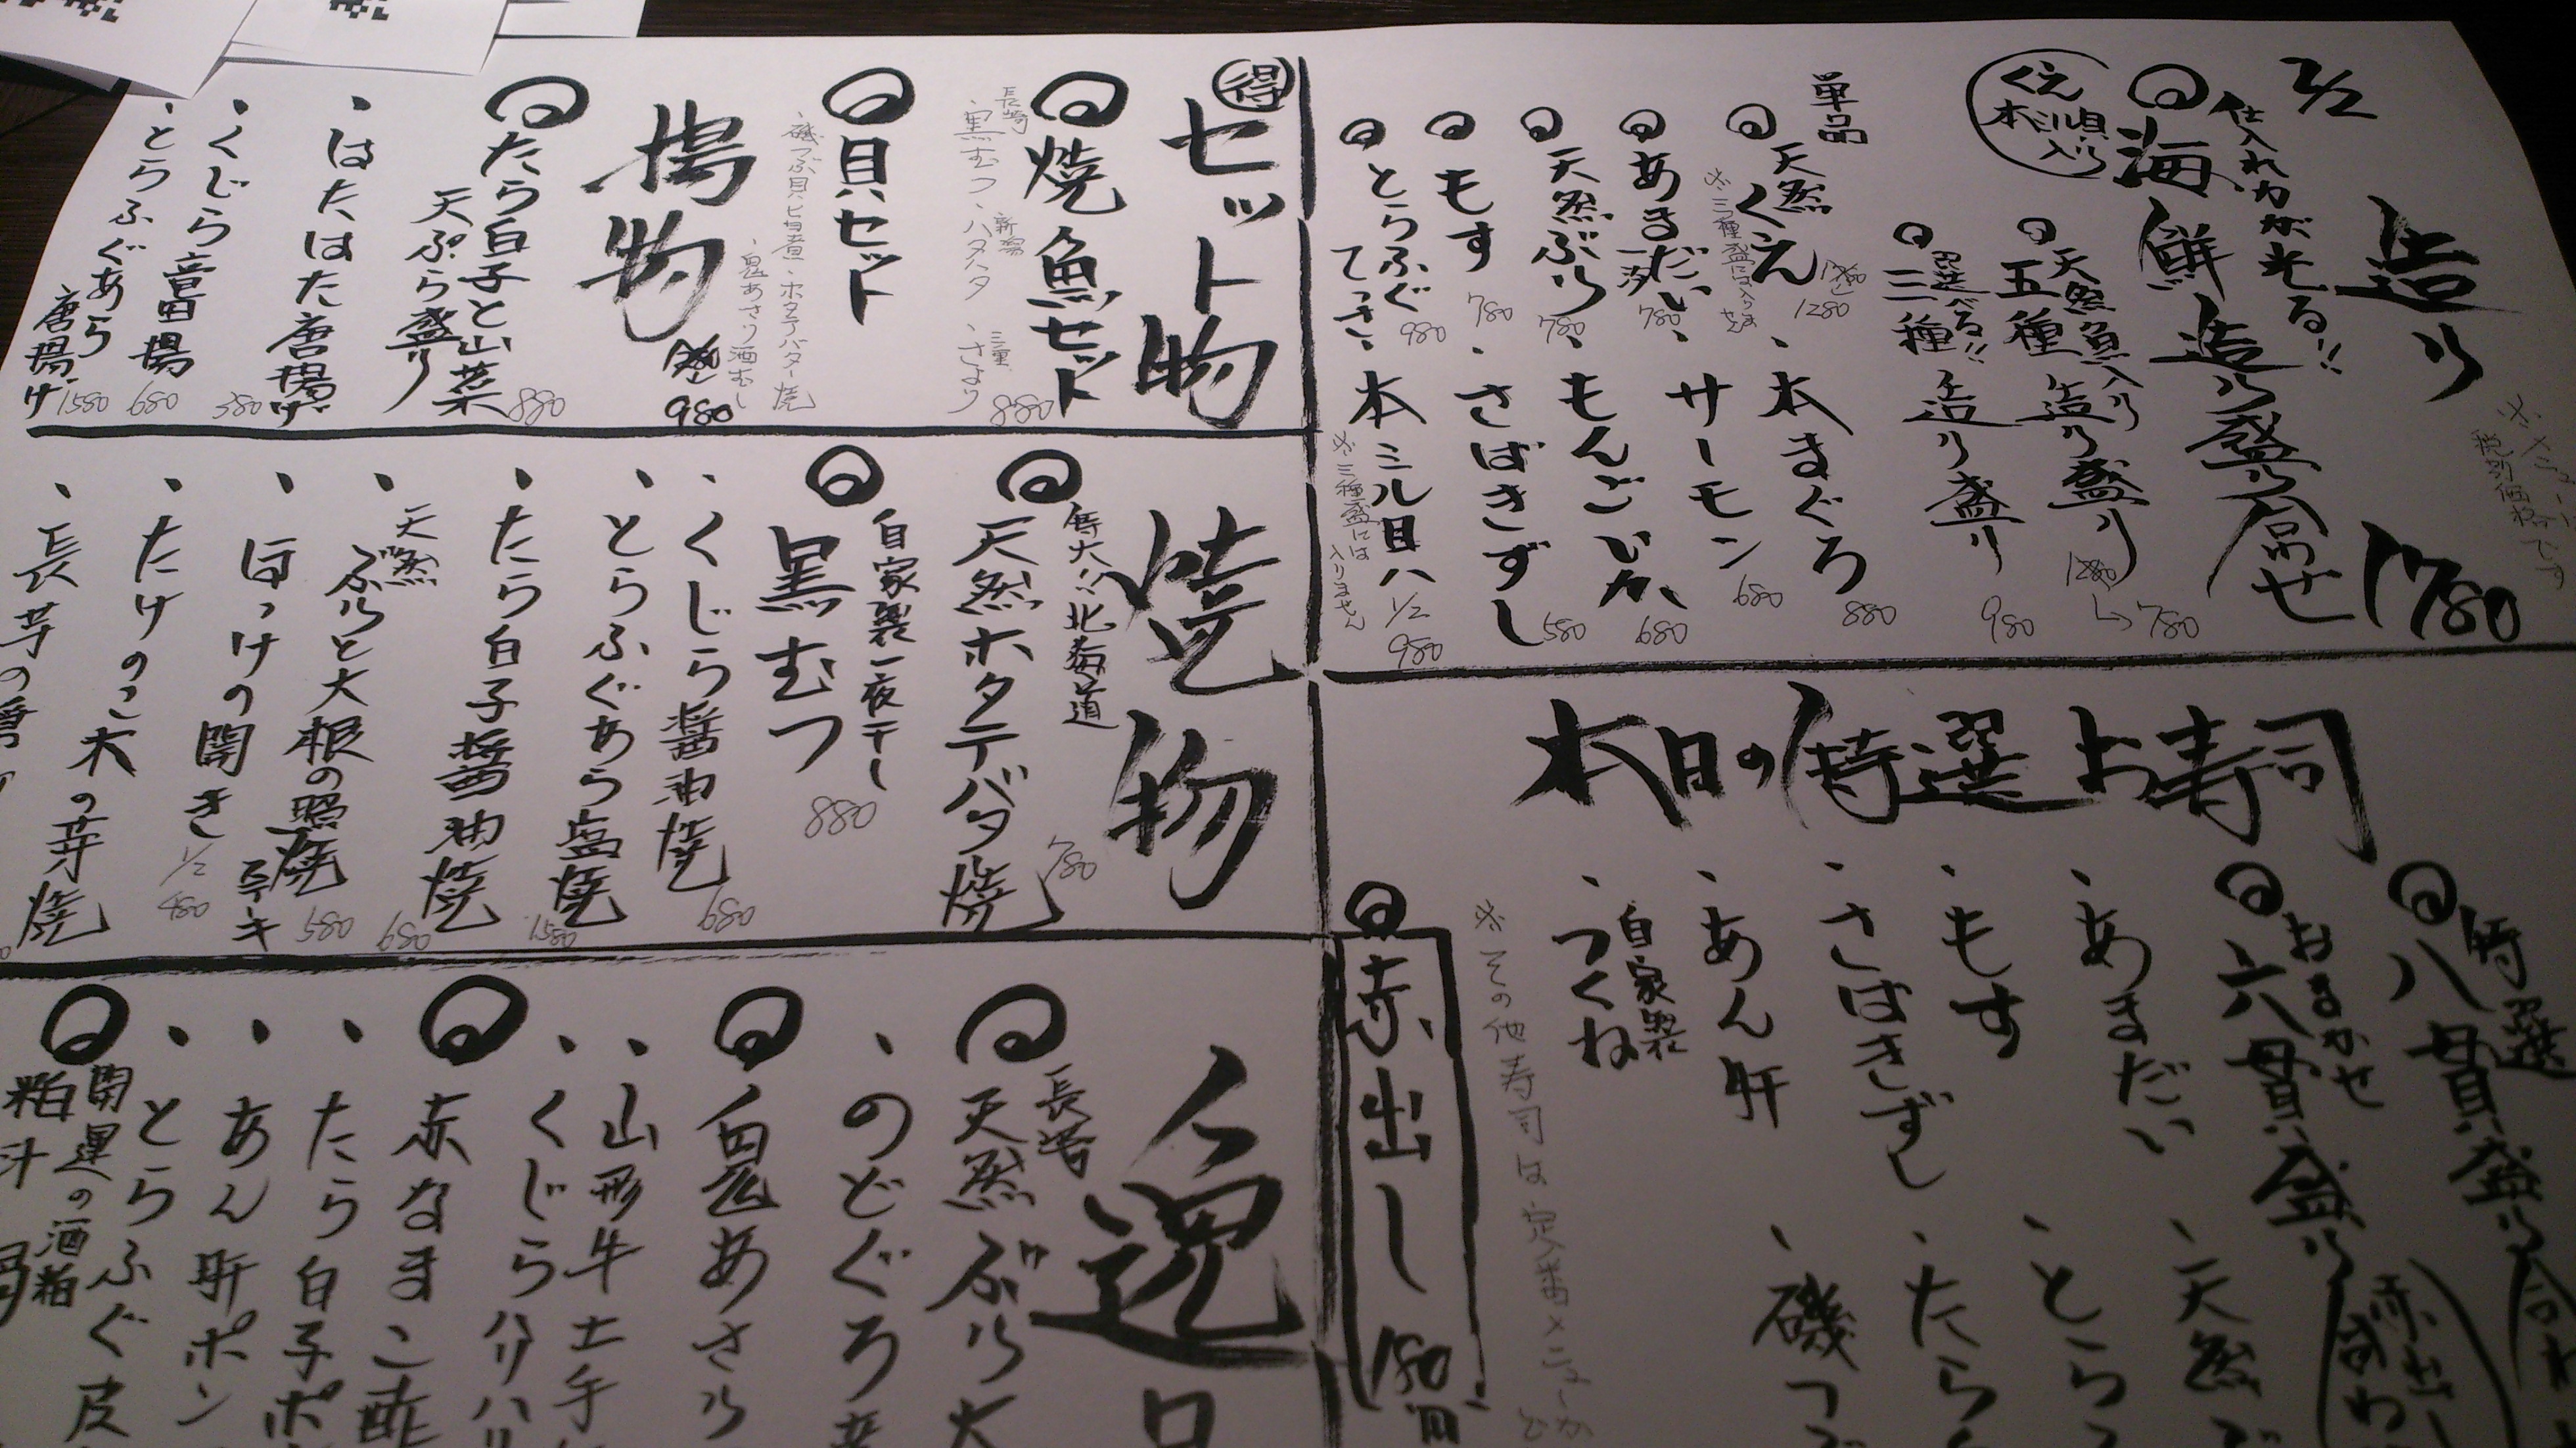 2/2
造り
仕入れ力が光る!!
海鮮造り盛り合わせ 1780
くえ
本ミル貝入り
天然魚入り
五種造り盛り 1280→780
選べる!!
三種造り盛り 980
単品
天然くえ 1280
※三種盛には入りません
あまだい 780
天然ぶり 780
もす 780
とらふぐてっさ 980
本まぐろ 880
サーモン 680
もんごいか 680
さばきずし 580
本ミル貝 1/2 980
※三種盛には入りません
本日の特選お寿司
特選
八貫盛り合わ
おまかせ
六貫盛り
赤出し
あまだい
もす
さばきずし
あん肝
自家製
つくね
天然ぶ
とら
たら
磯つぶ
※その他寿司は定番メニューか
赤出し 180円
得
セット物
焼魚セット 880
長崎
黒むつ
新潟
ハタハタ
三重
さより
貝セット 980
・磯つぶ貝旨煮・ホタテバター焼
・鬼あさり酒むし
揚物
たら白子と山菜
天ぷら盛り 880
はたはた唐揚げ 380
くじら竜田揚 680
とらふぐあら
唐揚げ 1580
焼物
特大!!北海道
天然ホタテバタ焼 780
自家製一夜干し
黒むつ 880
くじら醤油焼 680
とらふぐあら塩焼 1580
たら白子醤油焼 680
天然
ぶりと大根の照焼 580
ステーキ
ほっけの開き 1/2 480
たけのこ木の芽焼
長芋の
一逸品
長崎
天然ぶり大
のどぐろ煮
鬼あさり
山形牛土手
くじらハリハリ
赤なまこ酢
たら白子ポ
あん肝ポン
とらふぐ皮
開運の酒粕
粕汁